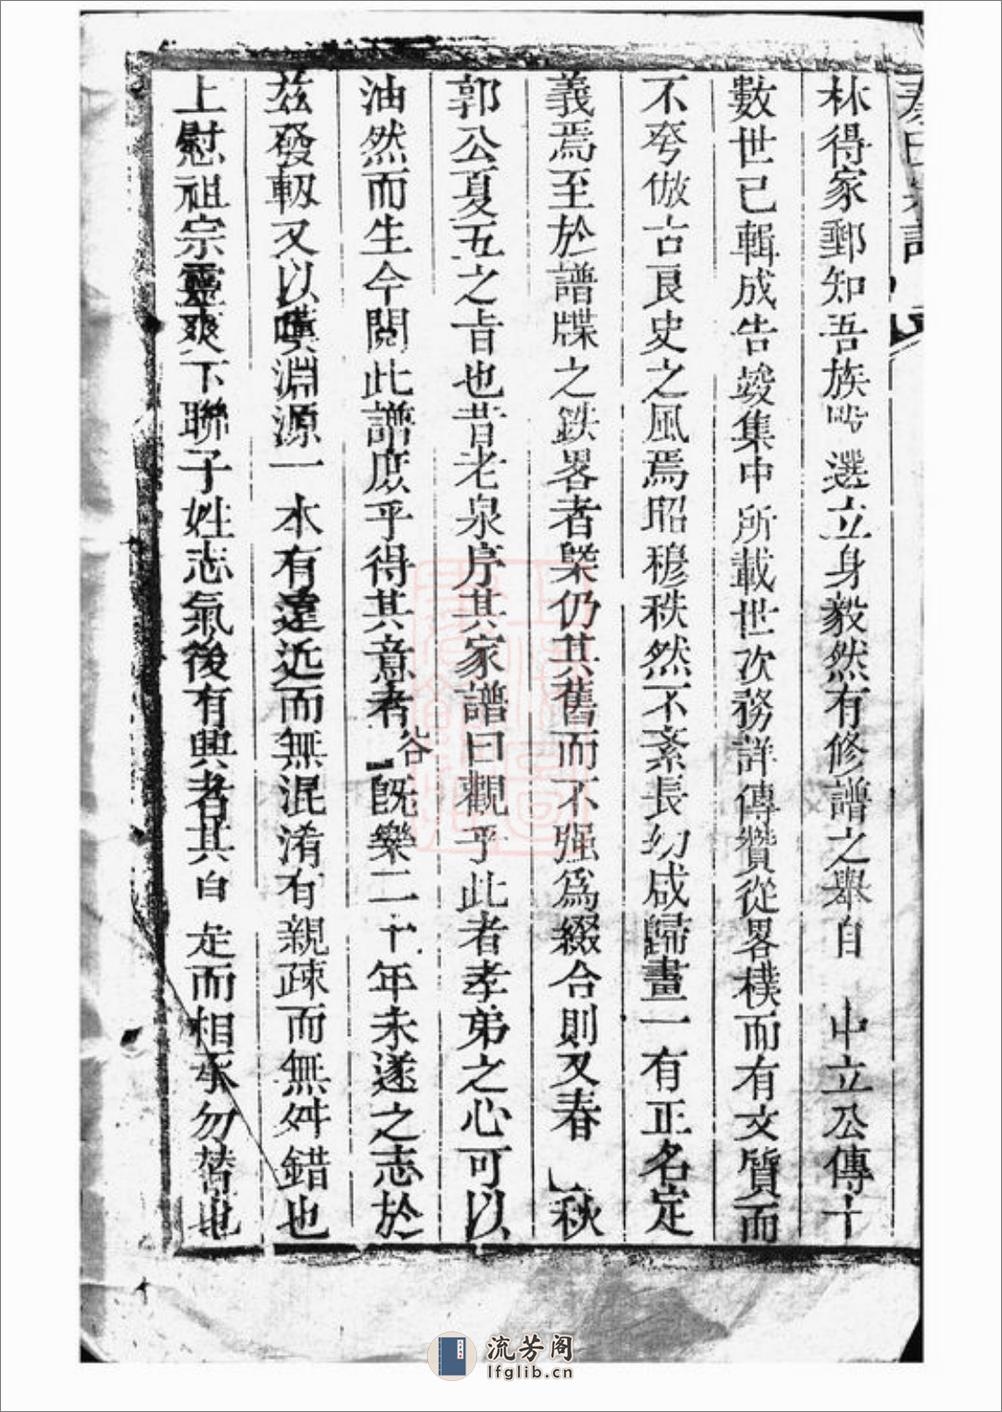 林得家郵知吾族 選立身毅然有修譜之舉自 中立公傳十
數世已輯成告竣集中所載世次務詳傳贊從畧樸而有文質而
不夸倣古良史之風焉昭穆秩然不紊長幼咸歸畫一有正名定
義焉至於譜牒之鉄畧者槩仍其舊而不强爲綴合則又春秋
郭公夏五之旨也昔老泉序其家譜曰觀乎此者孝弟之心可以
油然而生今閱此譜庶乎得其意者谷旣樂二十年未遂之志於
茲發軔又以嘆淵源一本有遠近而無混淆有親疎而無舛錯也
上慰祖宗靈爽下聯子姓志氣後有興者其自是而相承勿替也
流芳阁
lfglib.cn